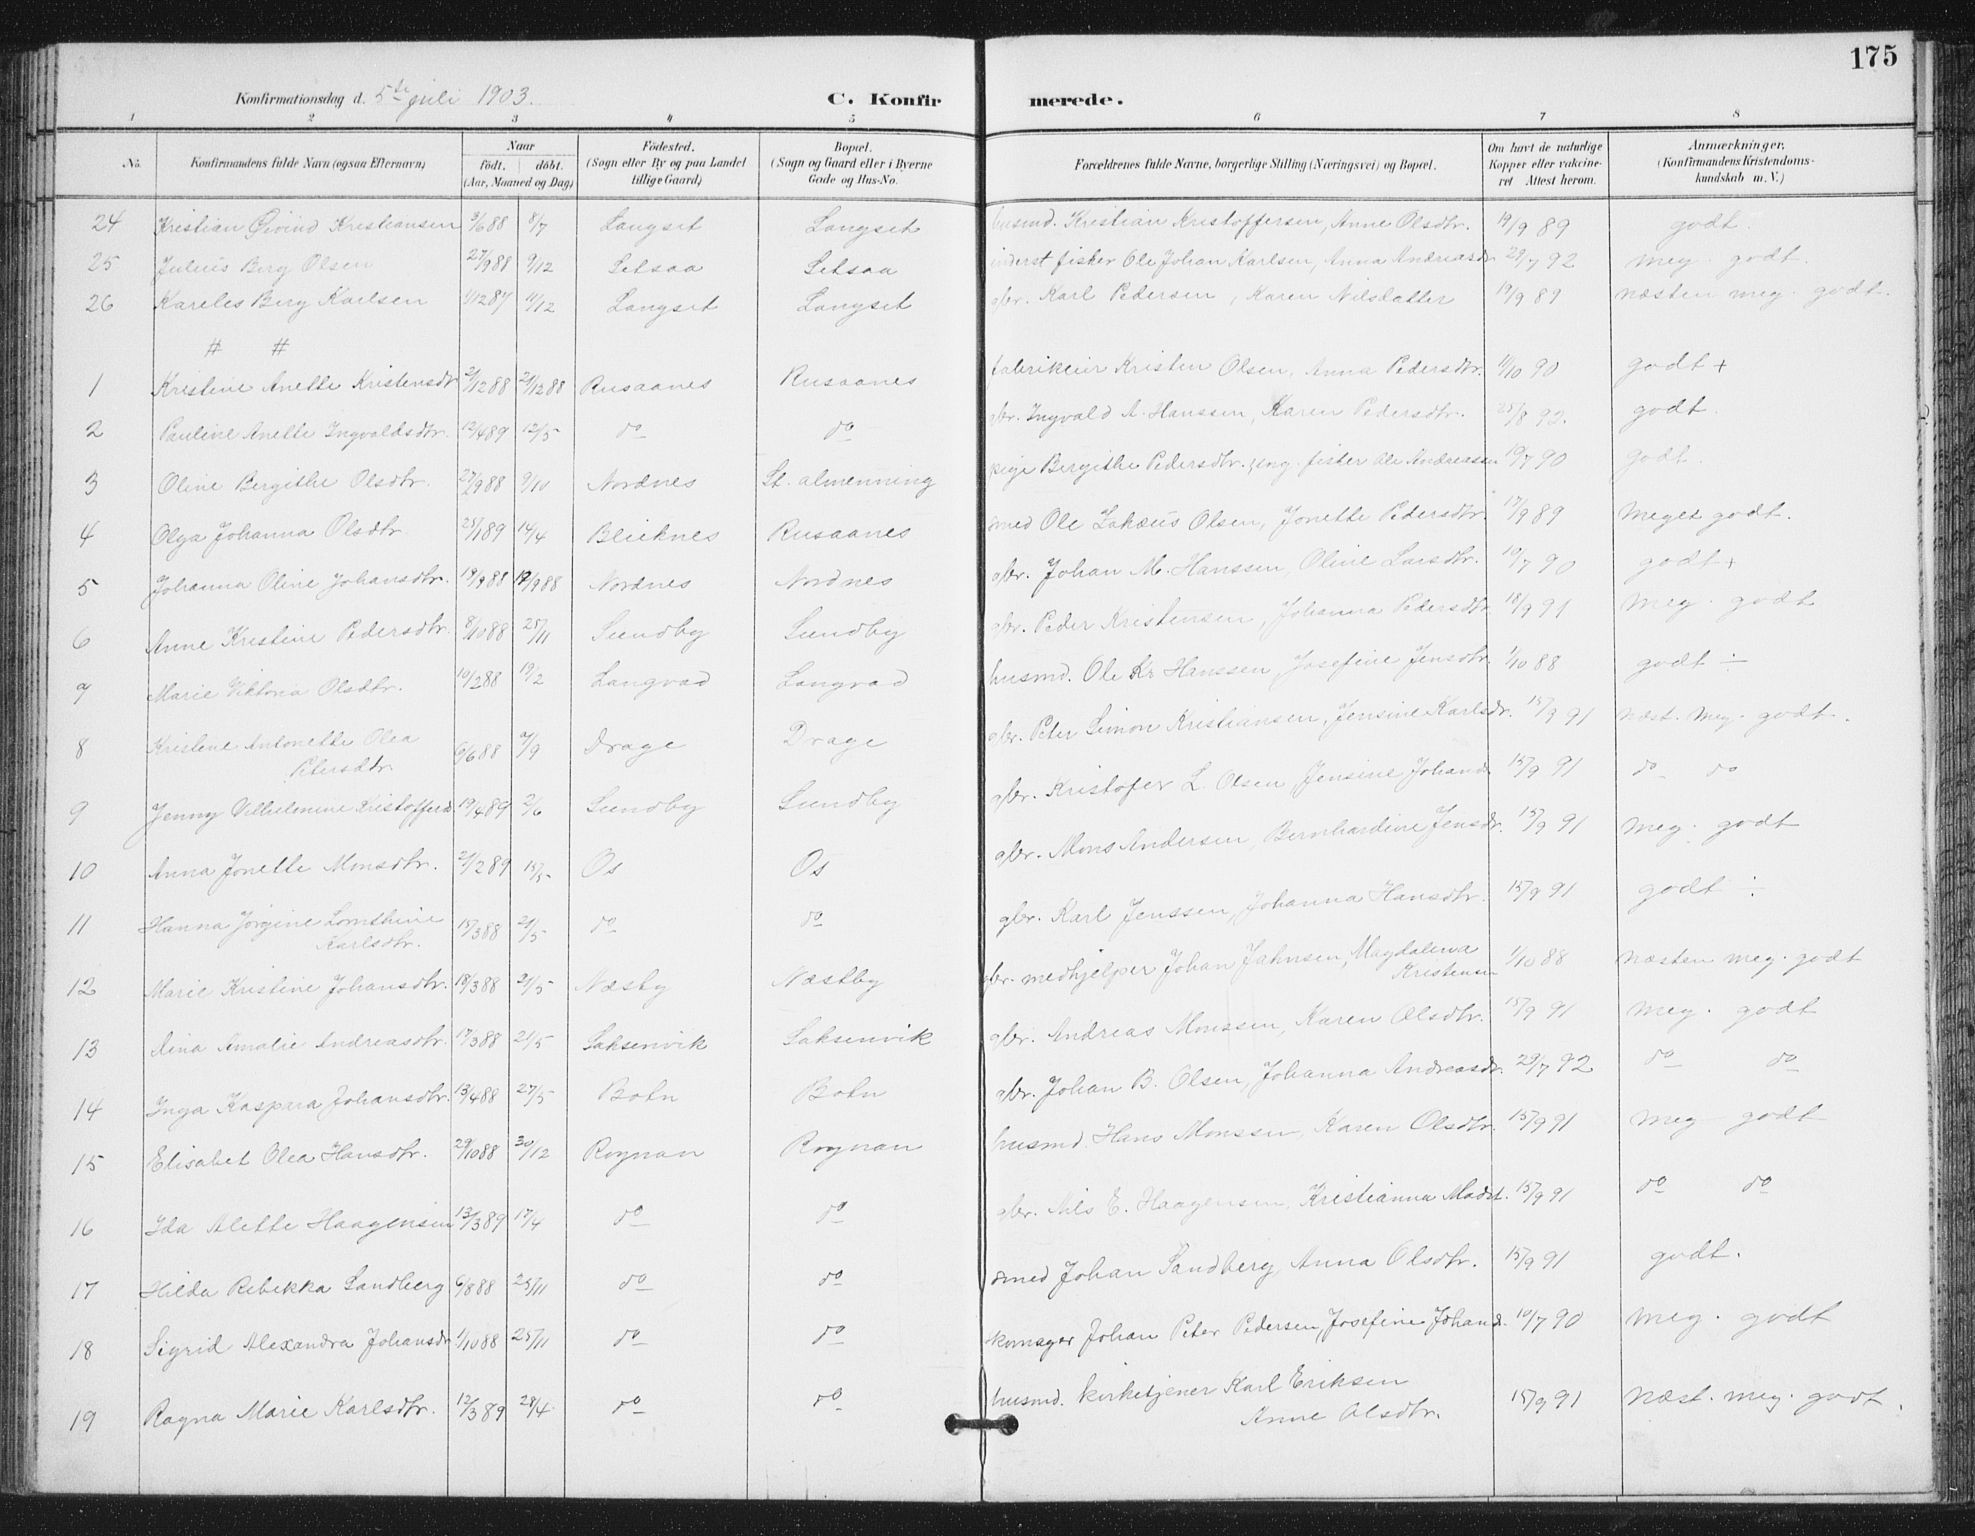 175
Konfirmationsdag d. 5te juli 1903. C. Konfir merede.
1 2 3 4 5 6 7 8
No. Konfirmandens fulde Navn (ogsaa Efternavn) Naar født. døbt. (Aar, Maaned og Dag) Fødested. (Sogn eller By og paa Landet tillige Gaard) Bopæl. (Sogn og Gaard eller i Byerne Gade og Hus-No. Forældrenes fulde Navne, borgerlige Stilling (Næringsvei) og Bopæl. Om havt de naturlige Kopper eller vakcineret Attest herom. Anmærkninger, (Konfirmandens Kristendomskundskab m. V.)
24 Kristian Øivind Kristiansen 3/6 88 8/7 Langset Langset husmd. Kristian Kristoffersen, Anne Olsdtr. 19/9 89 godt.
25 Julius Berg Olsen 27/9 88 9/12 Setsaa Setsaa inderst fisker Ole Johan Karlsen, Anna Andreasdr 29/7 92 meg. godt.
26 Kareles Berg Karlsen 1/12 87 11/12 Langset Langset gbr. Karl Pedersen, Karen Nilsdatter 19/9 89 næsten meg. godt.
# #
1 Kristine Anette Kristensdtr 2/12 88 27/12 88 Rusaanes Rusaanes fabrikeier Kristen Olsen, Anna Pedersdtr. 11/10 90 godt +
2 Pauline Anette Ingvaldsdtr. 12/4 89 12/5 do do gbr. Ingvald A. Hanssen, Karen Pedersdtr. 25/8 92. godt
3 Oline Bergithe Olsdtr. 27/9 88 9/10 Nordnes St. almenning pige Bergithe Pedersdtr. ung. fisker Ole Andreassen 10/7 90 godt.
4 Olga Johanna Olsdtr. 25/1 89 14/4 Blieknes Rusaanes smed Ole Zakæus Olsen, Jonette Pedersdtr. 17/9 89 meget godt.
5 Johanna Oline Johansdtr. 19/9 88 19/9 88 Nordnes Nordnes gbr. Johan M. Hanssen, Oline Larsdtr. 10/7 90 godt +
6 Anne Kristine Pedersdtr. 8/10 88 25/11 Sundby Sundby gbr. Peder Kristensen, Johanna Pedersdtr 18/9 91 meg. godt
7 Marie Viktoria Olsdtr. 10/2 88 19/2 Langvad Langvad husmd. Ole Kr Hanssen, Josefine Jensdtr. 1/10 88 godt ÷
8 Kristine Antonette Olea Petersdtr. 6/6 88 2/9 Drage Drage gbr. Peter Simon Kristiansen, Jensine Karlsdr. 15/9 91 næst. meg. godt.
9 Jenny Vilhelmine Kristofferd. 19/4 89 2/6 Sundby Sundby gbr. Kristofer L. Olsen Jensine Johansd. 15/9 91 do do
10 Anna Jonette Monsdtr. 2/2 89 15/5 Os Os gbr. Mons Andersen, Bernhardine Jensdr. 15/9 91 meg. godt
11 Hanna Jørgine Lornthine Karlsdtr. 15/3 88 21/5 do do gbr. Karl Jenssen, Johanna Hansdtr. 15/9 91 godt ÷
12 Marie Kristine Johansdtr. 18/3 88 21/5 Næsby Næstby gbr. medhjelper Johan Jahnsen, Magdalena Kristensen 1/10 88 næsten meg. godt
13 Dina Amalie Andreasdtr. 17/3 88 21/5 Saksenvik Saksenvik gbr. Andreas Monssen, Karen Olsdtr. 15/9 91 meg. godt
14 Inga Kaspara Johansdtr. 13/4 88 27/5 Botn Botn gbr. Johan B. Olsen, Johanna Andreasdr. 29/7 92 do do
15 Elisabet Olea Hansdtr. 29/10 88 30/12 Rognan Rognan husmd. Hans Monssen, Karen Olsdtr. 15/9 91 meg godt
16 Ida Alette Haagensen 13/3 89 17/4 do do gbr. Nils E. Haagensen, Kristianna Madst. 15/9 91 do do
17 Hilda Rebekka Sandberg 6/8 88 25/11 do do smed Johan Sandberg, Anna Olsdtr. 15/9 91 godt.
18 Sigrid Alexandra Johansdr 1/10 88 25/11 do do Johan Peter Pedersen Josefine Johansd. 10/7 90 meg. godt
19 Ragna Marie Karlsdtr. 12/3 89 28/4 do do husmd. kirketjener Karl Eriksen Anne Olsdtr. 15/9 91 næst. meg. godt.